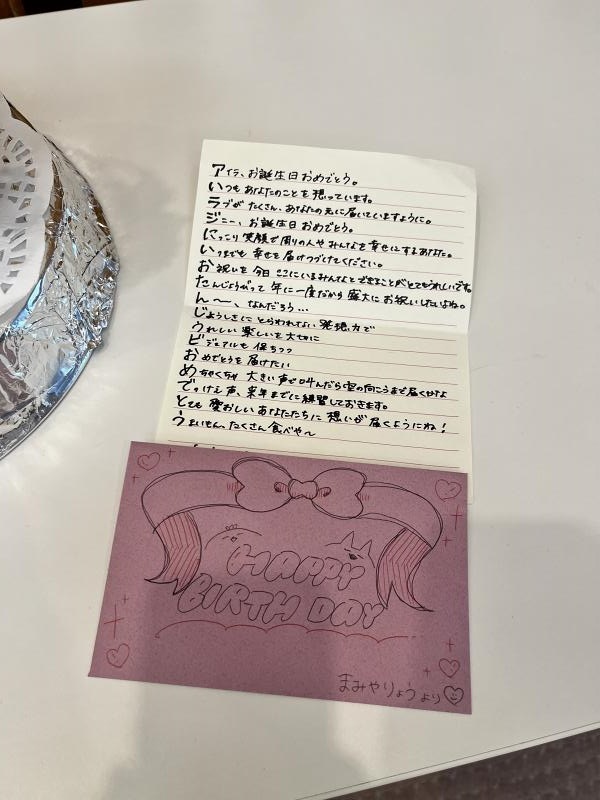 アイラ、お誕生日おめでとう。
いつもあなたのことを想っています。
ラブがたくさん、あなたの元に届いていますように。
ジニー、お誕生日おめでとう。
にっこり笑顔で周りの人やみんなを幸せにするあなた。
いつまでも幸せを届けつづけてください。
お祝いを今日ここにいるみんなとできることがとてもうれしいです。
たんじょうびって年に一度だから盛大にお祝いしたいよね。
ん〜、なんだろう…
じょうしきにとらわれない発想力で
うれしい楽しいを大切に
ビジュアルも保ちつつ
おめでとうを届けたい
めちゃくちゃ大きい声で叫んだら空の向こうまで届くかな
でっけえ声、来年までに練習しておきます。
とても愛おしいあなたたちに想いが届くようにね!
うまいもん、たくさん食べや〜
HAPPY
BIRTH DAY
まみやりょうより